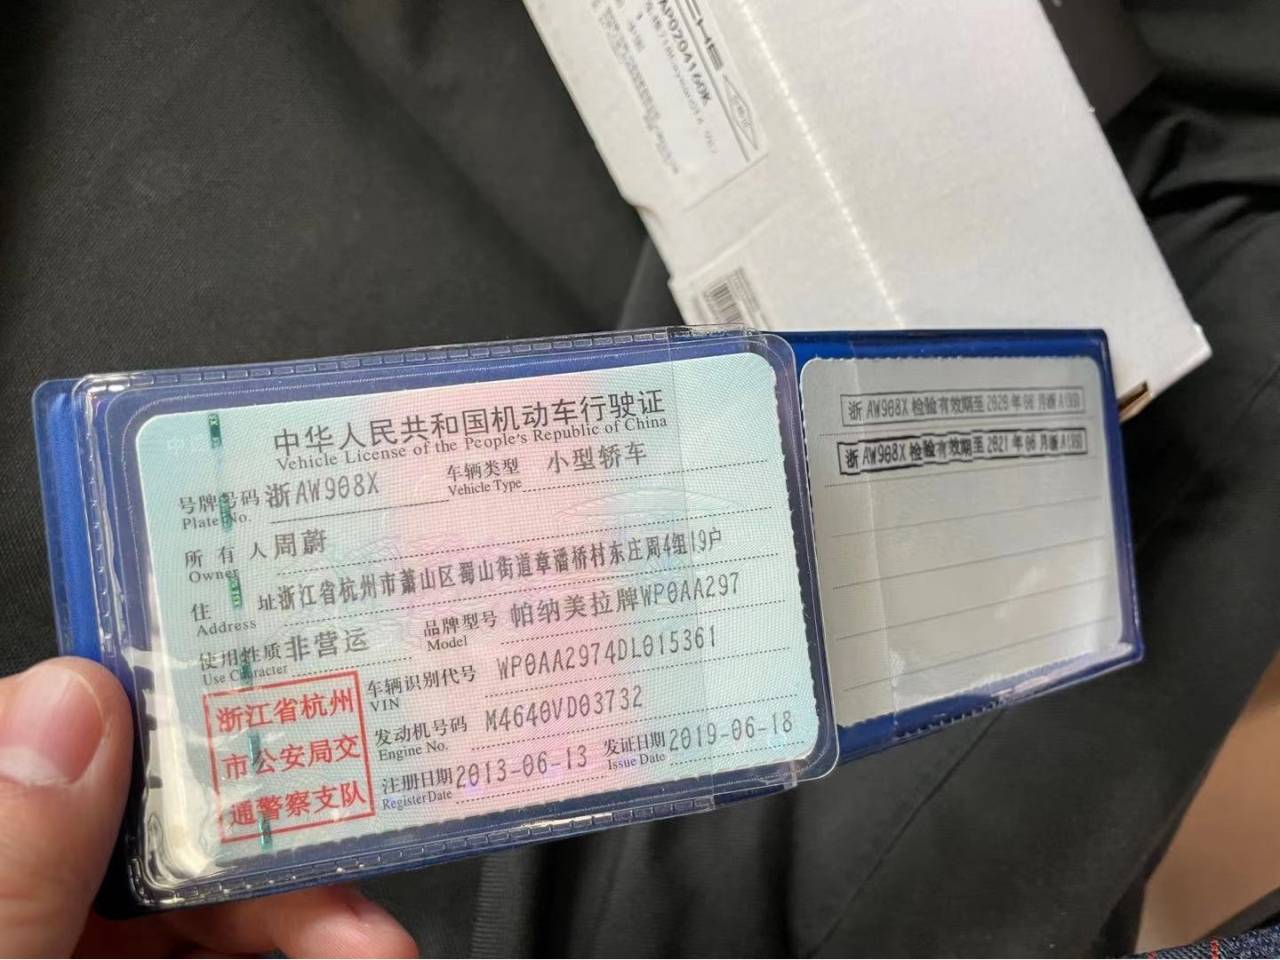 中华人民共和国机动车行驶证
Vehicle License of the People's Republic of China
号牌号码 浙AW908X 车辆类型 小型轿车
Plate No. Vehicle Type
所有人 周蔚
Owner
住址 浙江省杭州市萧山区蜀山街道章潘桥村东庄周4组19户
Address
使用性质 非营运 品牌型号 帕纳美拉牌WP0AA297
Use Character Model
车辆识别代号 WP0AA2974DL015361
VIN
发动机号码 M4640VD03732
Engine No.
注册日期 2013-06-13 发证日期 2019-06-18
Register Date Issue Date
浙江省杭州
市公安局交
通警察支队
浙AW908X检验有效期至2020年06月浙A
浙AW908X检验有效期至2021年06月浙A